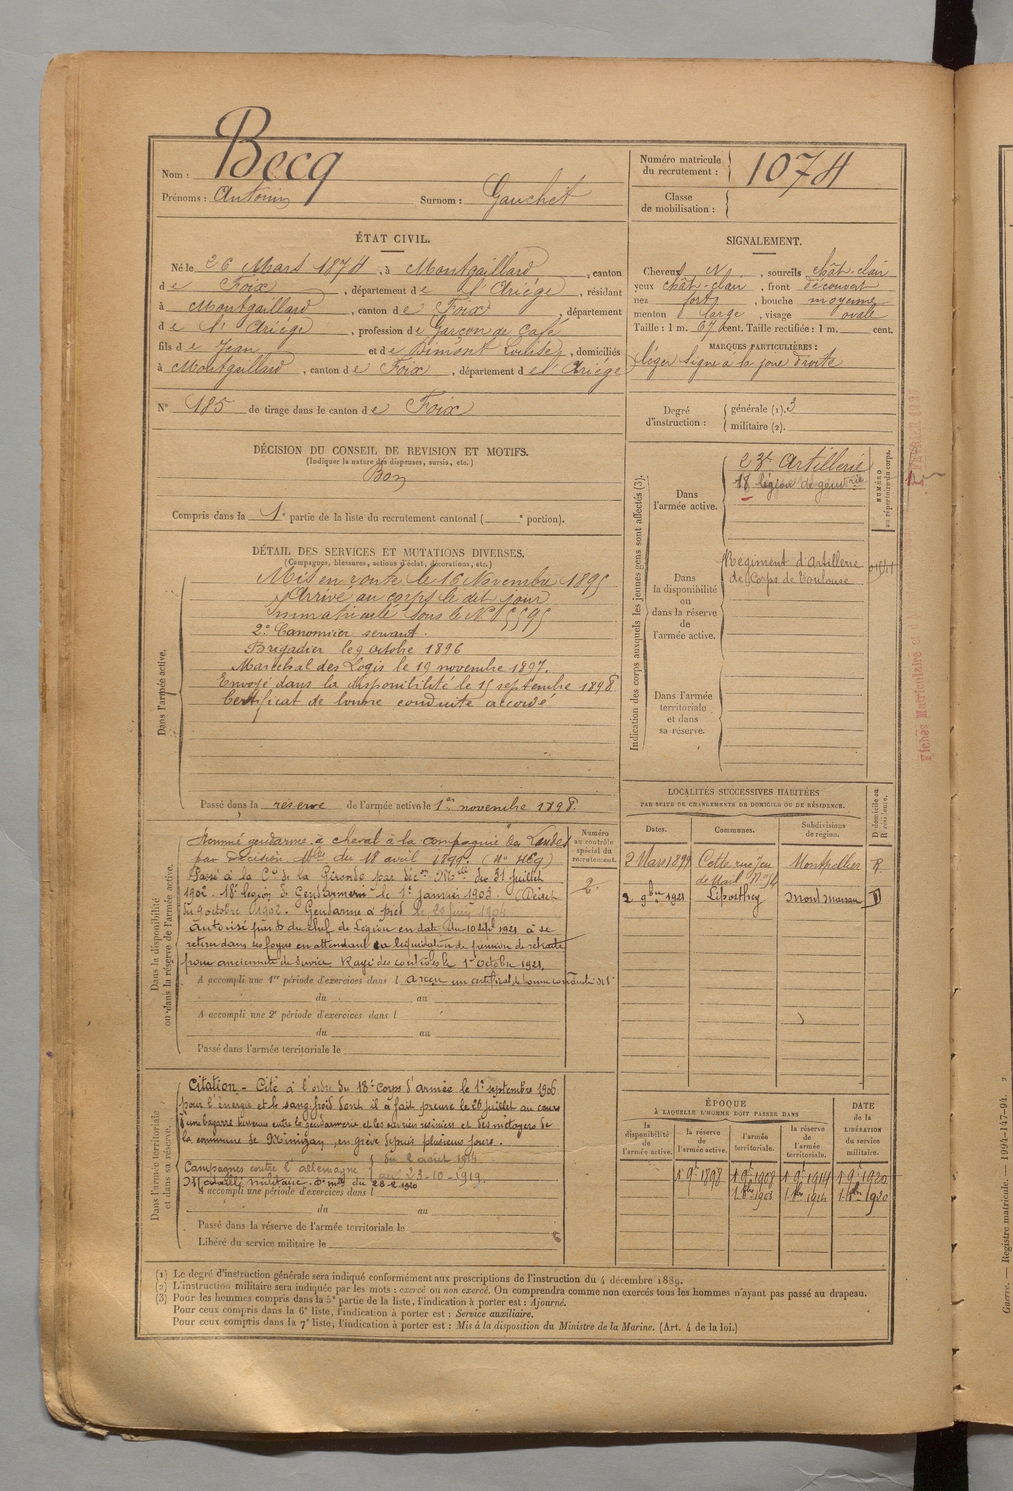 Nom : Becq
Prénoms : Antonin Surnom : Gauchet
Numéro matricule du recrutement : 1074
Classe de mobilisation :
ÉTAT CIVIL.
Né le 26 Mars 1874, à Montgaillard, canton
de Foix, département de l'Ariége, résidant
à Montgaillard, canton de Foix, département
de l'Ariége, profession de Garçon de Café
fils de Jean et de Dimont Louise, domiciliés
à Montgaillard, canton de Foix, département de l'Ariége
N° 185 de tirage dans le canton de Foix
SIGNALEMENT.
Cheveux N, sourcils chât-clair
yeux chât-clair, front découvert
nez fort, bouche moyenne
menton large, visage ovale
Taille : 1 m. 67 cent. Taille rectifiée : 1 m. cent.
MARQUES PARTICULIÈRES :
léger signe à la joue droite
Degré d'instruction : générale (1). 3
militaire (2).
DÉCISION DU CONSEIL DE REVISION ET MOTIFS.
(Indiquer la nature des dispenses, sursis, etc.)
Bon
Compris dans la 1e partie de la liste du recrutement cantonal ( e portion).
Indication des corps auxquels les jeunes gens sont affectés (3).
NUMÉRO au répertoire du corps.
Dans l'armée active.
23e Artillerie
18 légion de gendrie
Dans la disponibilité ou dans la réserve de l'armée active.
Régiment d'Artillerie
de Corps de Toulouse
Dans l'armée territoriale et dans sa réserve.
DÉTAIL DES SERVICES ET MUTATIONS DIVERSES.
(Campagnes, blessures, actions d'éclat, décorations, etc.)
Dans l'armée active.
Mis en route le 16 Novembre 1895
Arrivé au corps le dit jour
Immatriculé sous le N° 5595
2e Canonnier servant.
Brigadier le 9 octobre 1896
Maréchal des Logis le 19 novembre 1897.
Envoyé dans la disponibilité le 15 septembre 1898.
Certificat de bonne conduite accordé
Passé dans la réserve de l'armée active le 1er novembre 1898.
Dans la disponibilité ou dans la réserve de l'armée active.
Numéro au contrôle spécial du recrutement.
2.
Nommé gendarme à cheval à la compagnie des Landes
par décision Mlle du 18 avril 1899.
Passé à la Cie de la Gironde par décon Mlle du 31 juillet
1902. 18e légion de Gendarmerie le 1er janvier 1903.
du 9 octobre 1902. Gendarme à pied le 20 juin 1904
Autorisé par D du Chef de Légion en date du 10 sept 1921 à se
retirer dans ses foyers en attendant la liquidation de pension de retraite
pour ancienneté de service. Rayé des contrôles le 1er Octobre 1921.
A accompli une 1re période d'exercices dans l A reçu un certificat de bonne conduite
du au
A accompli une 2e période d'exercices dans l
du au
Passé dans l'armée territoriale le
LOCALITÉS SUCCESSIVES HABITÉES
PAR SUITE DE CHANGEMENTS DE DOMICILE OU DE RÉSIDENCE.
Dates. Communes. Subdivisions de région. D domicile ou R résidence.
2 Mars 1899 Cette rue Jeu de Mail N° 54 Montpellier R
2 9bre 1921 Liposthey Mont Marsan D
Dans l'armée territoriale et dans sa réserve.
Citation - Cité à l'ordre du 18e Corps d'armée le 1er septembre 1906
pour l'énergie et le sang-froid dont il a fait preuve le 26 juillet au cours
d'une bagarre survenue entre la gendarmerie et les ouvriers résiniers et des métayers de
la commune de Mimizan, en grève depuis plusieurs jours.
Campagnes contre l'allemagne du 2 août 1914
au 23-10-1919.
Médaille militaire du 28-2 1920
A accompli une période d'exercices dans l
du au
Passé dans la réserve de l'armée territoriale le
Libéré du service militaire le
ÉPOQUE
À LAQUELLE L'HOMME DOIT PASSER DANS
la disponibilité de l'armée active. la réserve de l'armée active. l'armée territoriale. la réserve de l'armée territoriale.
DATE de la LIBÉRATION du service militaire.
1 9e 1898 1 9e 1908 1 9e 1914 1 9e 1920
1 8bre 1908 1 8bre 1914 1 8bre 1920
(1) Le degré d'instruction générale sera indiqué conformément aux prescriptions de l'instruction du 4 décembre 1889.
(2) L'instruction militaire sera indiquée par les mots : exercé ou non exercé. On comprendra comme non exercés tous les hommes n'ayant pas passé au drapeau.
(3) Pour les hommes compris dans la 5e partie de la liste, l'indication à porter est : Ajourné.
Pour ceux compris dans la 6e liste, l'indication à porter est : Service auxiliaire.
Pour ceux compris dans la 7e liste, l'indication à porter est : Mis à la disposition du Ministre de la Marine. (Art. 4 de la loi.)
Guerre. — Registre matricule. — 1994-147-94.